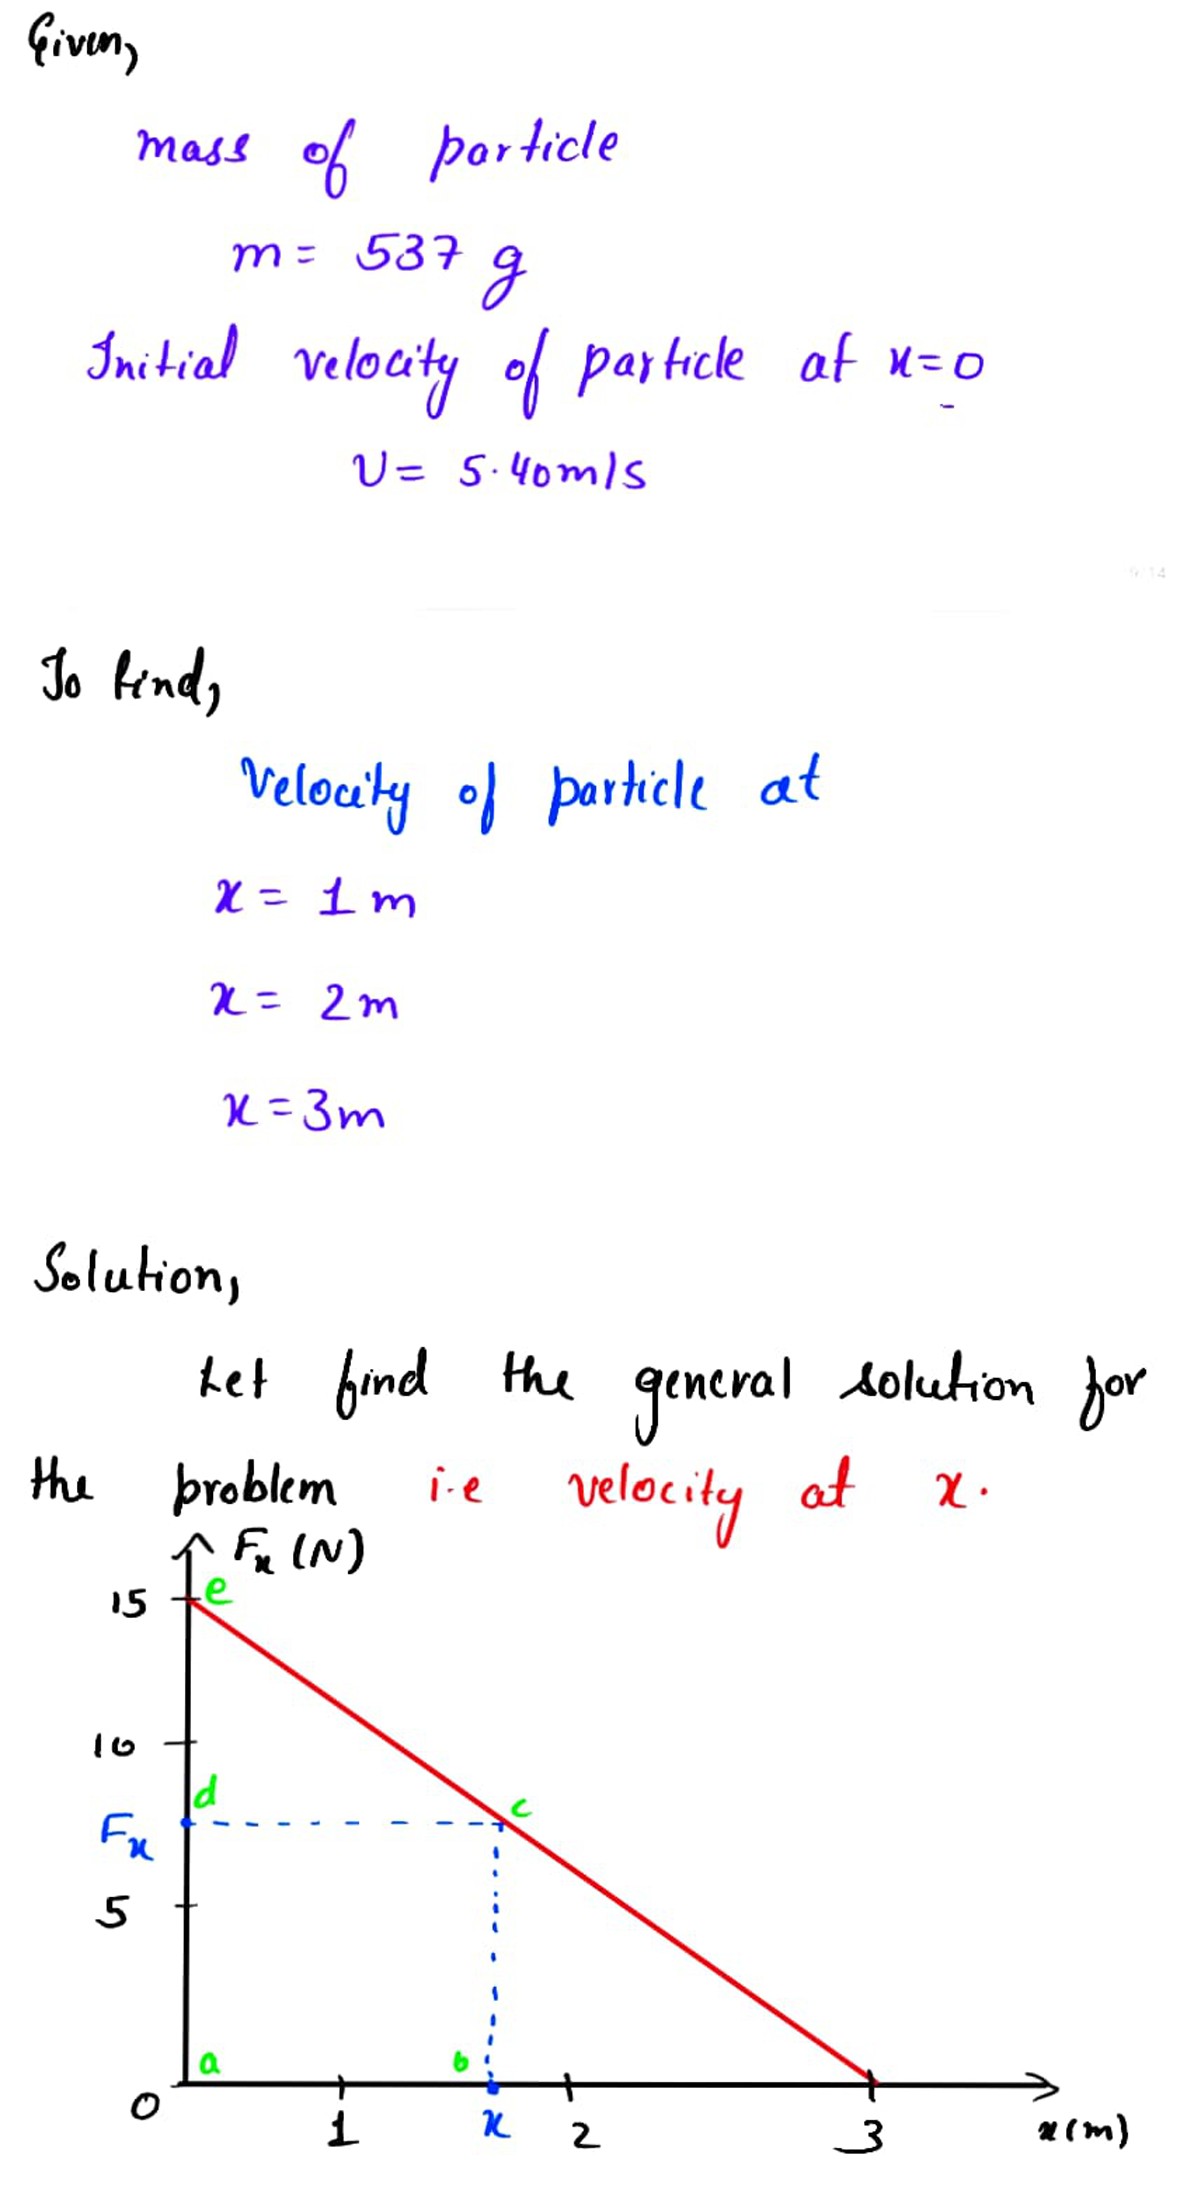 Given,
mass of particle
m = 537 g
Initial velocity of particle at x=0
U = 5.40m/s
9:14
To find,
Velocity of particle at
x = 1 m
x = 2m
x = 3m
Solution,
Let find the general solution for
the problem i.e velocity at x.
Fx (N)
15 e
10
d
c
Fx
5
a b
0 1 x 2 3 x(m)